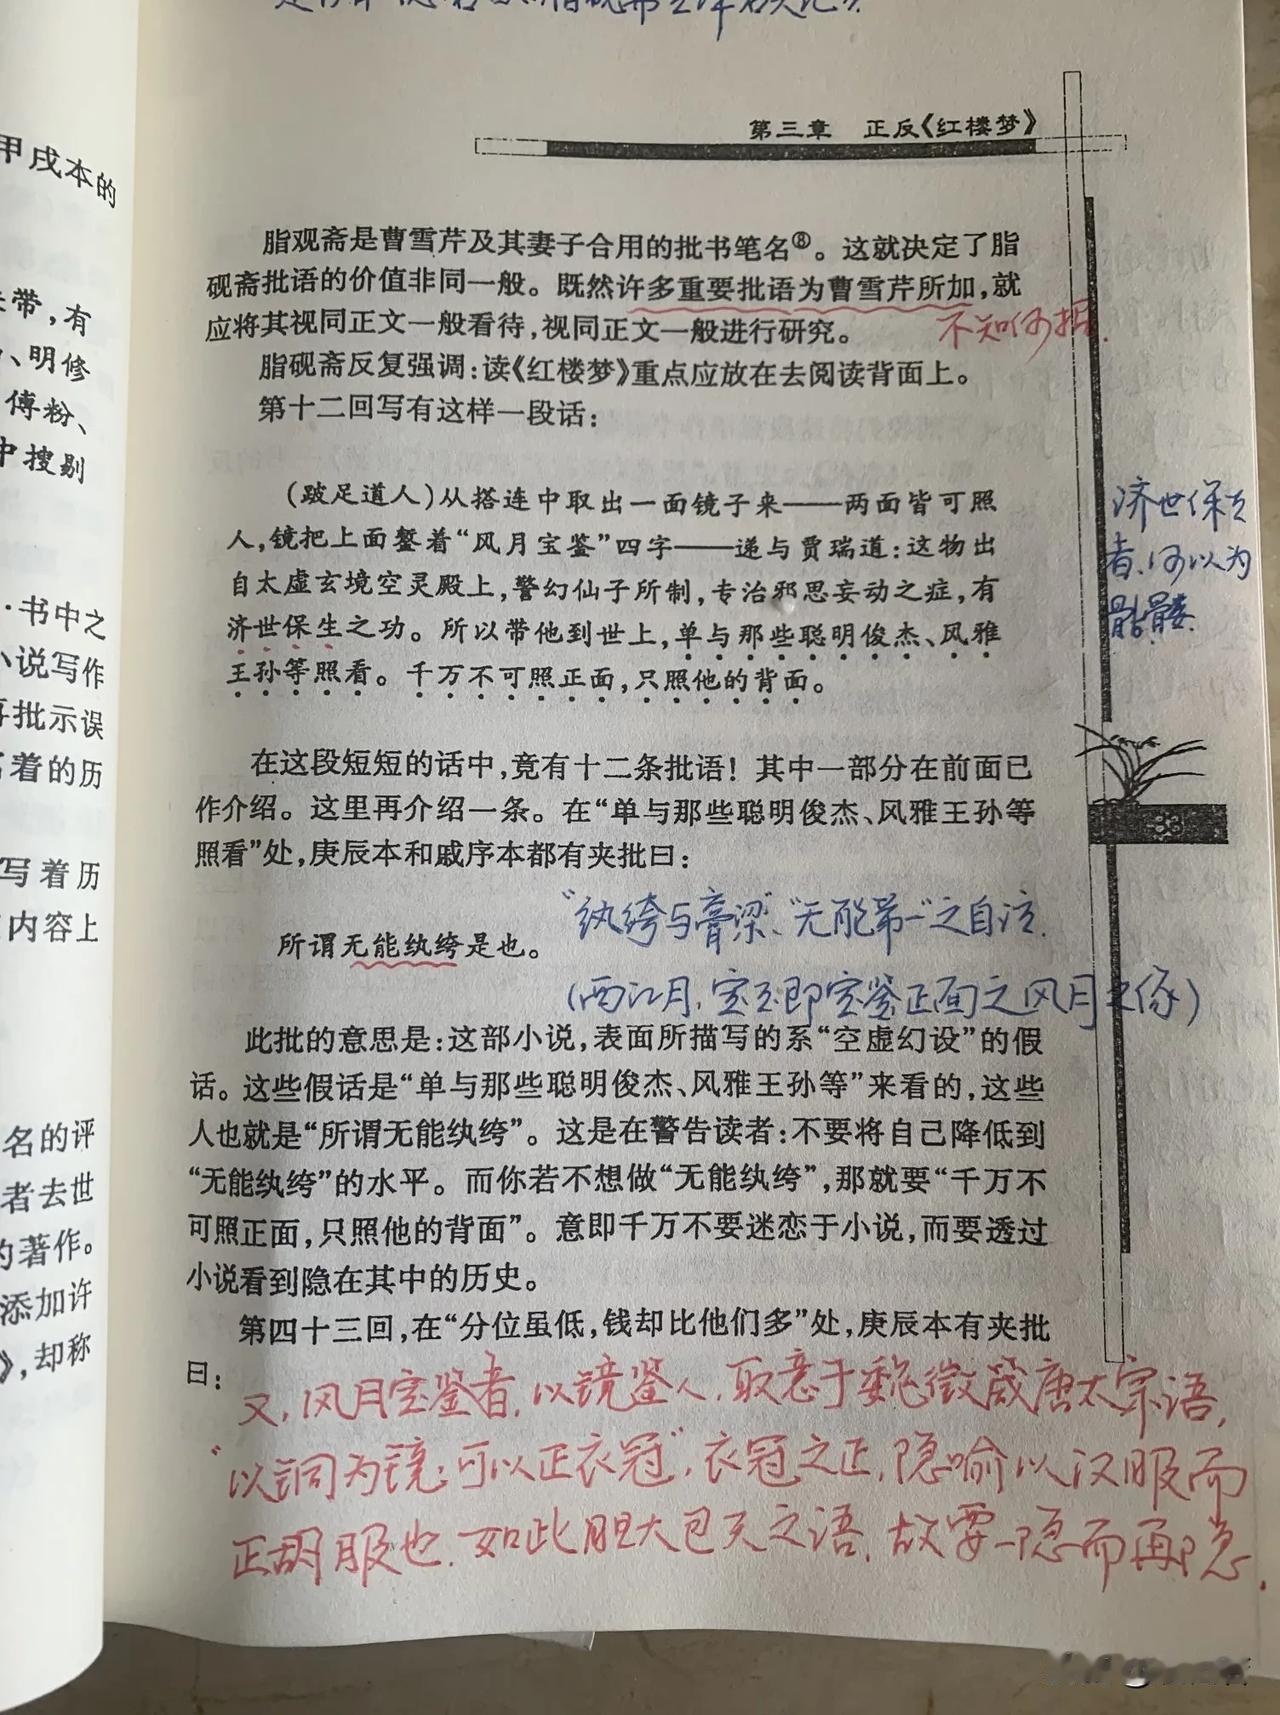 甲戌本的
带，有
、明修
傅粉、
中搜剔
·书中之
小说写作
再批示误
着的历
写着历
内容上
名的评
者去世
的著作。
添加许
》，却称
第三章 正反《红楼梦》
脂观斋是曹雪芹及其妻子合用的批书笔名⑧。这就决定了脂
砚斋批语的价值非同一般。既然许多重要批语为曹雪芹所加，就
应将其视同正文一般看待，视同正文一般进行研究。
不知何据.
脂砚斋反复强调：读《红楼梦》重点应放在去阅读背面上。
第十二回写有这样一段话：
（跛足道人）从搭连中取出一面镜子来——两面皆可照
人，镜把上面錾着“风月宝鉴”四字——递与贾瑞道：这物出
自太虚玄境空灵殿上，警幻仙子所制，专治邪思妄动之症，有
济世保生之功。所以带他到世上，单与那些聪明俊杰、风雅
王孙等照看。千万不可照正面，只照他的背面。
济世保生
者，何以为
骷髅.
在这段短短的话中，竟有十二条批语！其中一部分在前面已
作介绍。这里再介绍一条。在“单与那些聪明俊杰、风雅王孙等
照看”处，庚辰本和戚序本都有夹批曰：
所谓无能纨绔是也。
“纨绔与膏梁”、“无能第一”之自注.
（西江月，宝玉即宝鉴正面之风月之像）
此批的意思是：这部小说，表面所描写的系“空虚幻设”的假
话。这些假话是“单与那些聪明俊杰、风雅王孙等”来看的，这些
人也就是“所谓无能纨绔”。这是在警告读者：不要将自己降低到
“无能纨绔”的水平。而你若不想做“无能纨绔”，那就要“千万不
可照正面，只照他的背面”。意即千万不要迷恋于小说，而要透过
小说看到隐在其中的历史。
第四十三回，在“分位虽低，钱却比他们多”处，庚辰本有夹批
曰：
又，风月宝鉴者，以镜鉴人，取意于魏徵箴唐太宗语，
“以铜为镜，可以正衣冠”，衣冠之正，隐喻以汉服而
正胡服也。如此胆大包天之语，故要一隐而再隐.